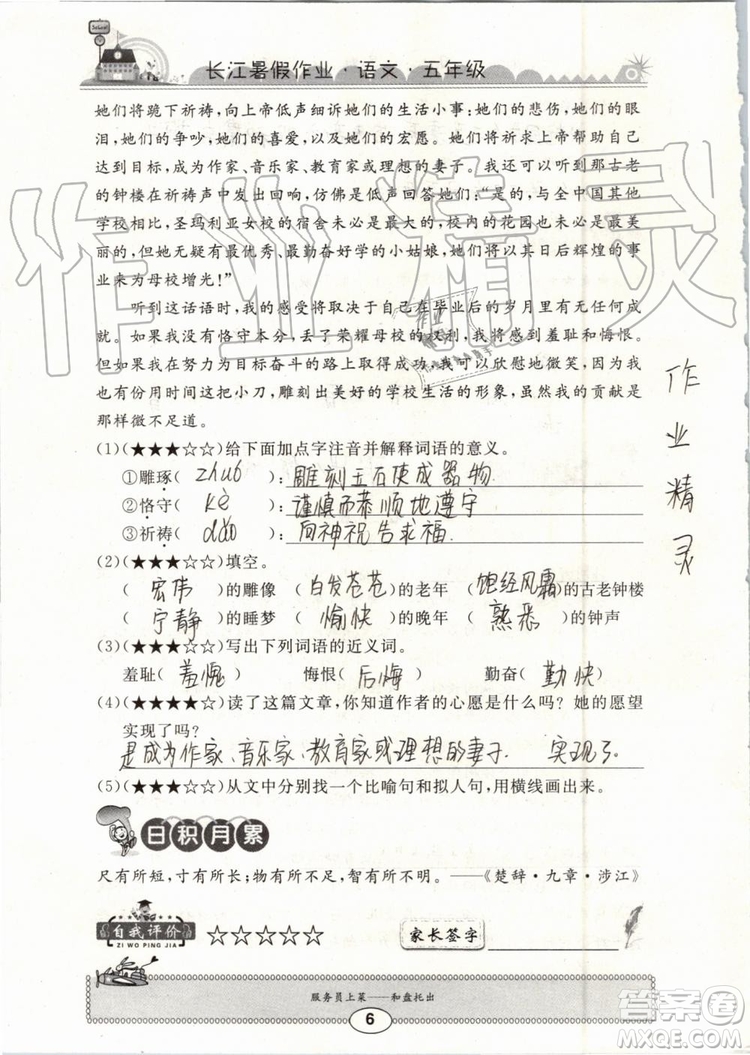 School
长江暑假作业·语文·五年级
她们将跪下祈祷,向上帝低声细诉她们的生活小事:她们的悲伤,她们的眼
泪,她们的争吵,她们的喜爱,以及她们的宏愿。她们将祈求上帝帮助自己
达到目标,成为作家、音乐家、教育家或理想的妻子。我还可以听到那古老
的钟楼在祈祷声中发出回响,仿佛是低声回答她们:“是的,与全中国其他
学校相比,圣玛利亚女校的宿舍未必是最大的,校内的花园也未必是最美
丽的,但她无疑有最优秀、最勤奋好学的小姑娘,她们将以其日后辉煌的事
业来为母校增光!”
听到这话语时,我的感受将取决于自己在毕业后的岁月里有无任何成
就。如果我没有恪守本分,丢了荣耀母校的权利,我将感到羞耻和悔恨。
但如果我在努力为目标奋斗的路上取得成功,我可以欣慰地微笑,因为我
也有份用时间这把小刀,雕刻出美好的学校生活的形象,虽然我的贡献是
那样微不足道。
(1)(★★★☆☆)给下面加点字注音并解释词语的意义。
①雕琢( zhuó ):雕刻玉石使成器物
②恪守( kè ):谨慎而恭顺地遵守
③祈祷( dǎo ):向神祝告求福.
(2)(★★★☆☆)填空。
( 宏伟 )的雕像 ( 白发苍苍 )的老年 ( 饱经风霜 )的古老钟楼
( 宁静 )的睡梦 ( 愉快 )的晚年 ( 熟悉 )的钟声
(3)(★★★☆☆)写出下列词语的近义词。
羞耻( 羞愧 ) 悔恨( 后悔 ) 勤奋( 勤快 )
(4)(★★★★☆)读了这篇文章,你知道作者的心愿是什么吗?她的愿望
实现了吗?
是成为作家、音乐家、教育家或理想的妻子. 实现了.
(5)(★★★☆☆)从文中分别找一个比喻句和拟人句,用横线画出来。
日积月累
尺有所短,寸有所长;物有所不足,智有所不明。——《楚辞·九章·涉江》
自我评价 ☆☆☆☆☆ 家长签字
ZI WO PING JIA
服务员上菜——和盘托出
6
作业精灵
作业精灵
答案圈
MXQE.COM